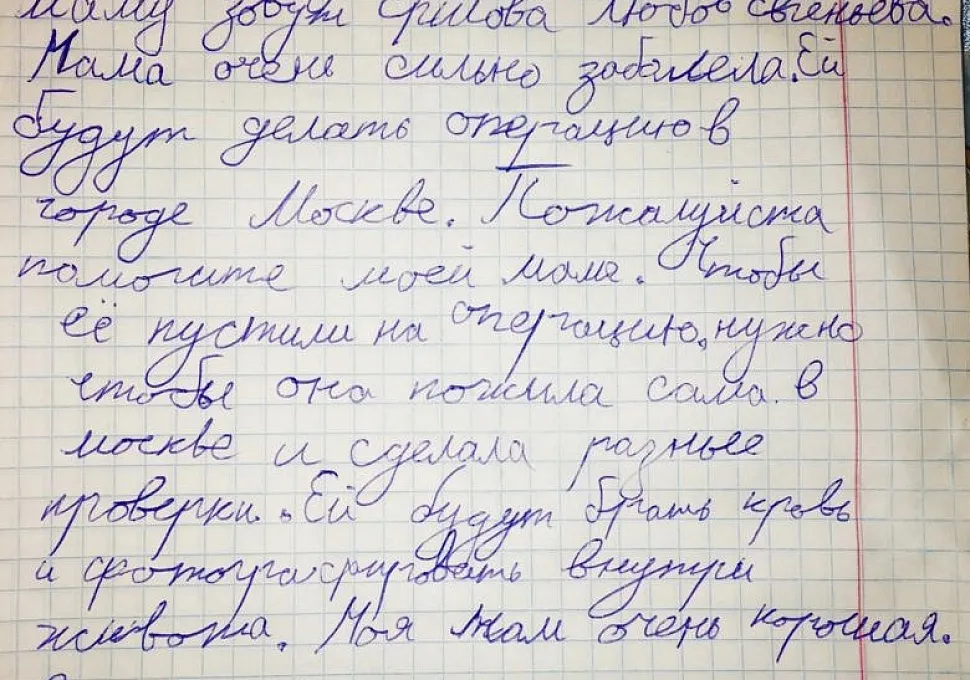 маму зовут Филова Любовь Евгеньева.
Мама очень сильно заболела. Ей
будут делать операцию в
городе Москве. Пожалуйста
помогите моей маме. Чтобы
её пустили на операцию, нужно
чтобы она пожила сама в
москве и сделала разные
проверки. Ей будут брать кровь
и фотографировать внутри
живота. Моя мам очень хорошая.